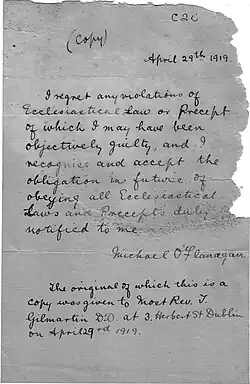 C2C
(Copy)
April 29th 1919.
I regret any violations of
Ecclesiastical Law or Precept
of which I may have been
objectively guilty, and I
recognise and accept the
obligation in future of
obeying all Ecclesiastical
Laws and Precepts duly
notified to me.
Michael O'Flanagan.
The original of which this is a
copy was given to Most Rev. T.
Gilmartin D.D. at 3. Herbert St Dublin
on April 29rd 1919.